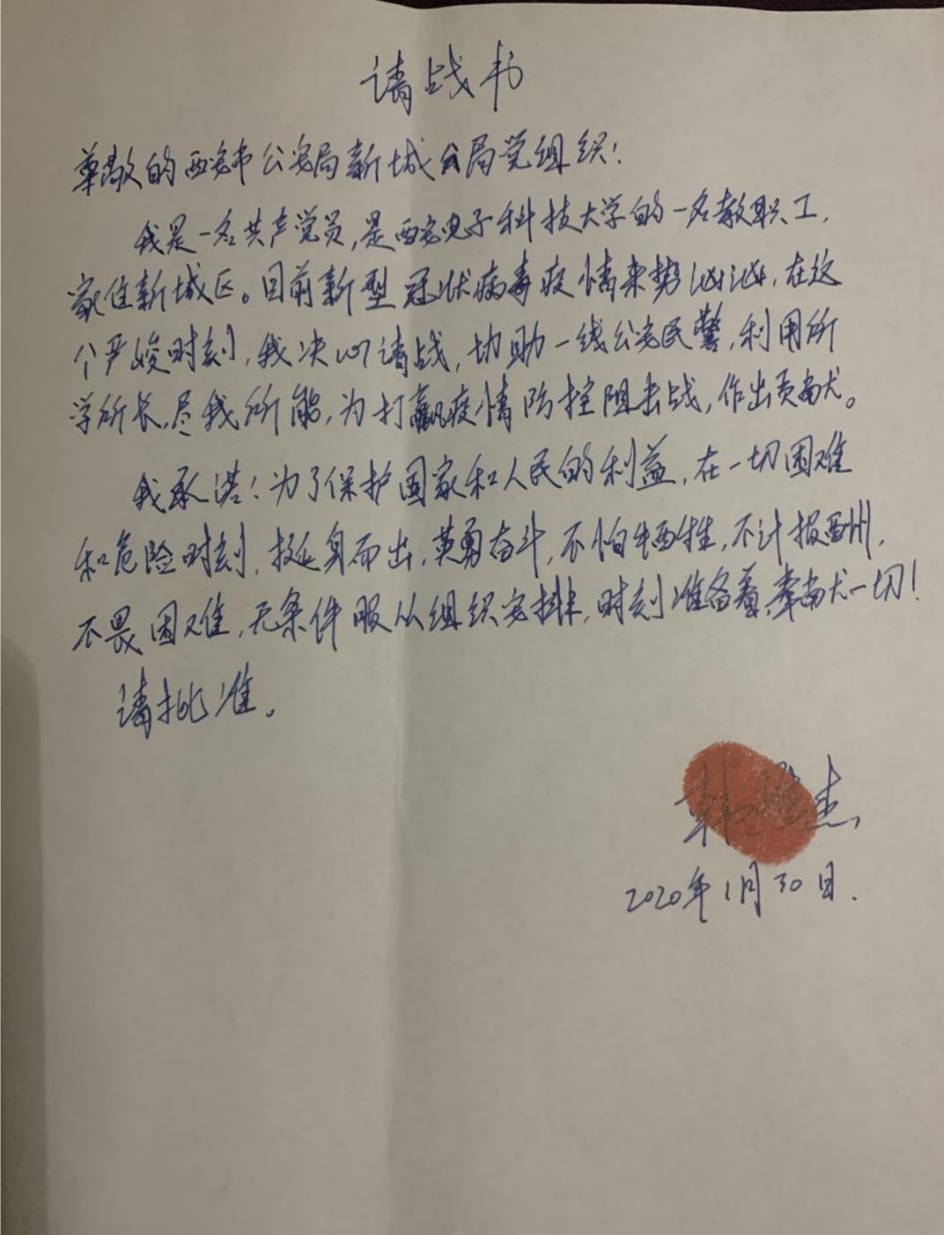 请战书
尊敬的西安市公安局新城分局党组织!
我是一名共产党员,是西安电子科技大学的一名教职工,
家住新城区。目前新型冠状病毒疫情来势汹汹,在这
个严峻时刻,我决心请战,协助一线公安民警,利用所
学所长,尽我所能,为打赢疫情防控阻击战,作出贡献。
我承诺!为了保护国家和人民的利益,在一切困难
和危险时刻,挺身而出,英勇奋斗,不怕牺牲,不计报酬,
不畏困难,无条件服从组织安排,时刻准备着,奉献一切!
请批准。
韩 杰
2020年1月30日.